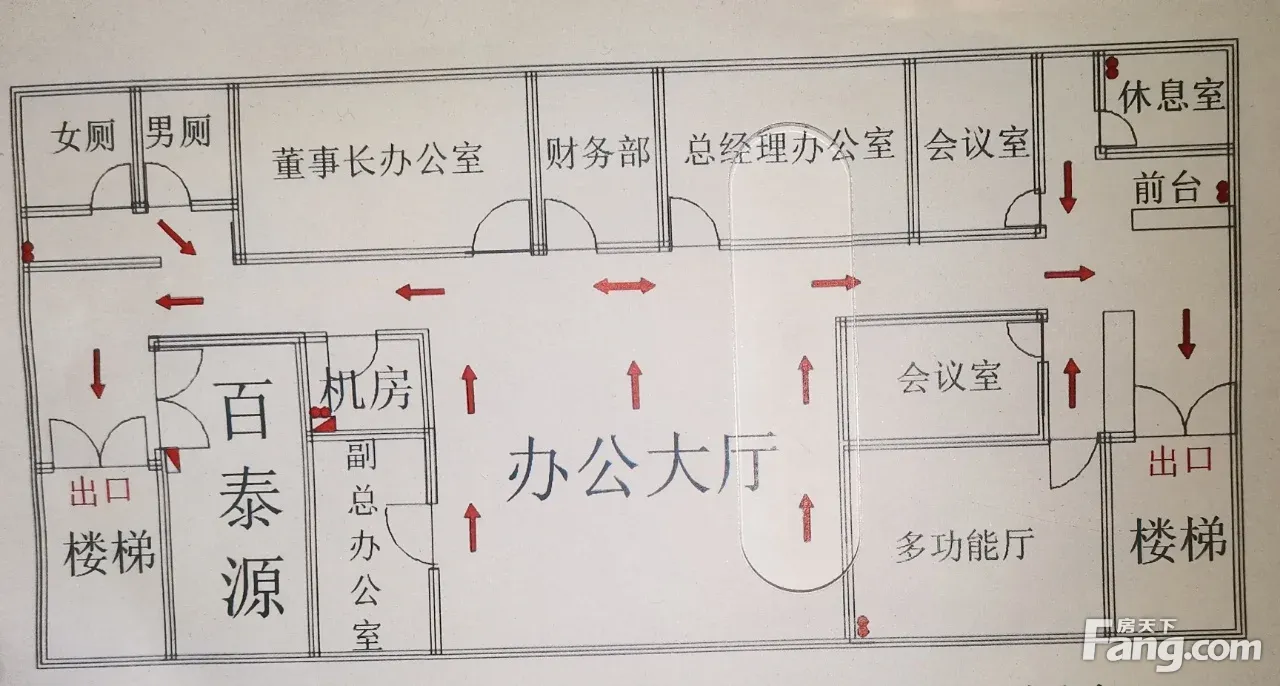 女厕
男厕
董事长办公室
财务部
总经理办公室
会议室
休息室
前台
百泰源
机房
会议室
办公大厅
副总办公室
出口
楼梯
多功能厅
出口
楼梯
房天下
Fang.com